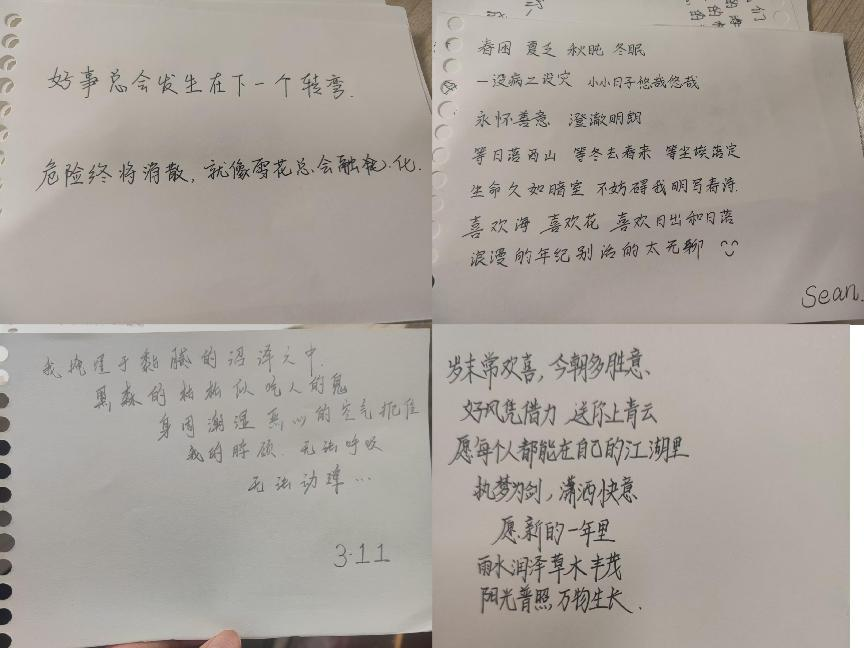 好事总会发生在下一个转弯.
危险终将消散,就像雪花总会融化.
春困 夏乏 秋盹 冬眠
一没病二没灾 小小日子悠哉悠哉
永怀善意 澄澈明朗
等日落西山 等冬去春来 等尘埃落定
生命久如暗室 不妨碍我明写春诗.
喜欢海 喜欢花 喜欢日出和日落
浪漫的年纪别活的太无聊
Sean.
我掩埋于黏腻的沼泽之中.
黑森的枯松似吃人的鬼
身周潮湿 的空气扼住
我的脖颈.无法呼吸
无法动弹…
3·11
岁末常欢喜,今朝多胜意、
好风凭借力 送你上青云
愿每个人都能在自己的江湖里
执梦为剑,潇洒快意
愿新的一年里
雨水润泽草木丰茂
阳光普照,万物生长.